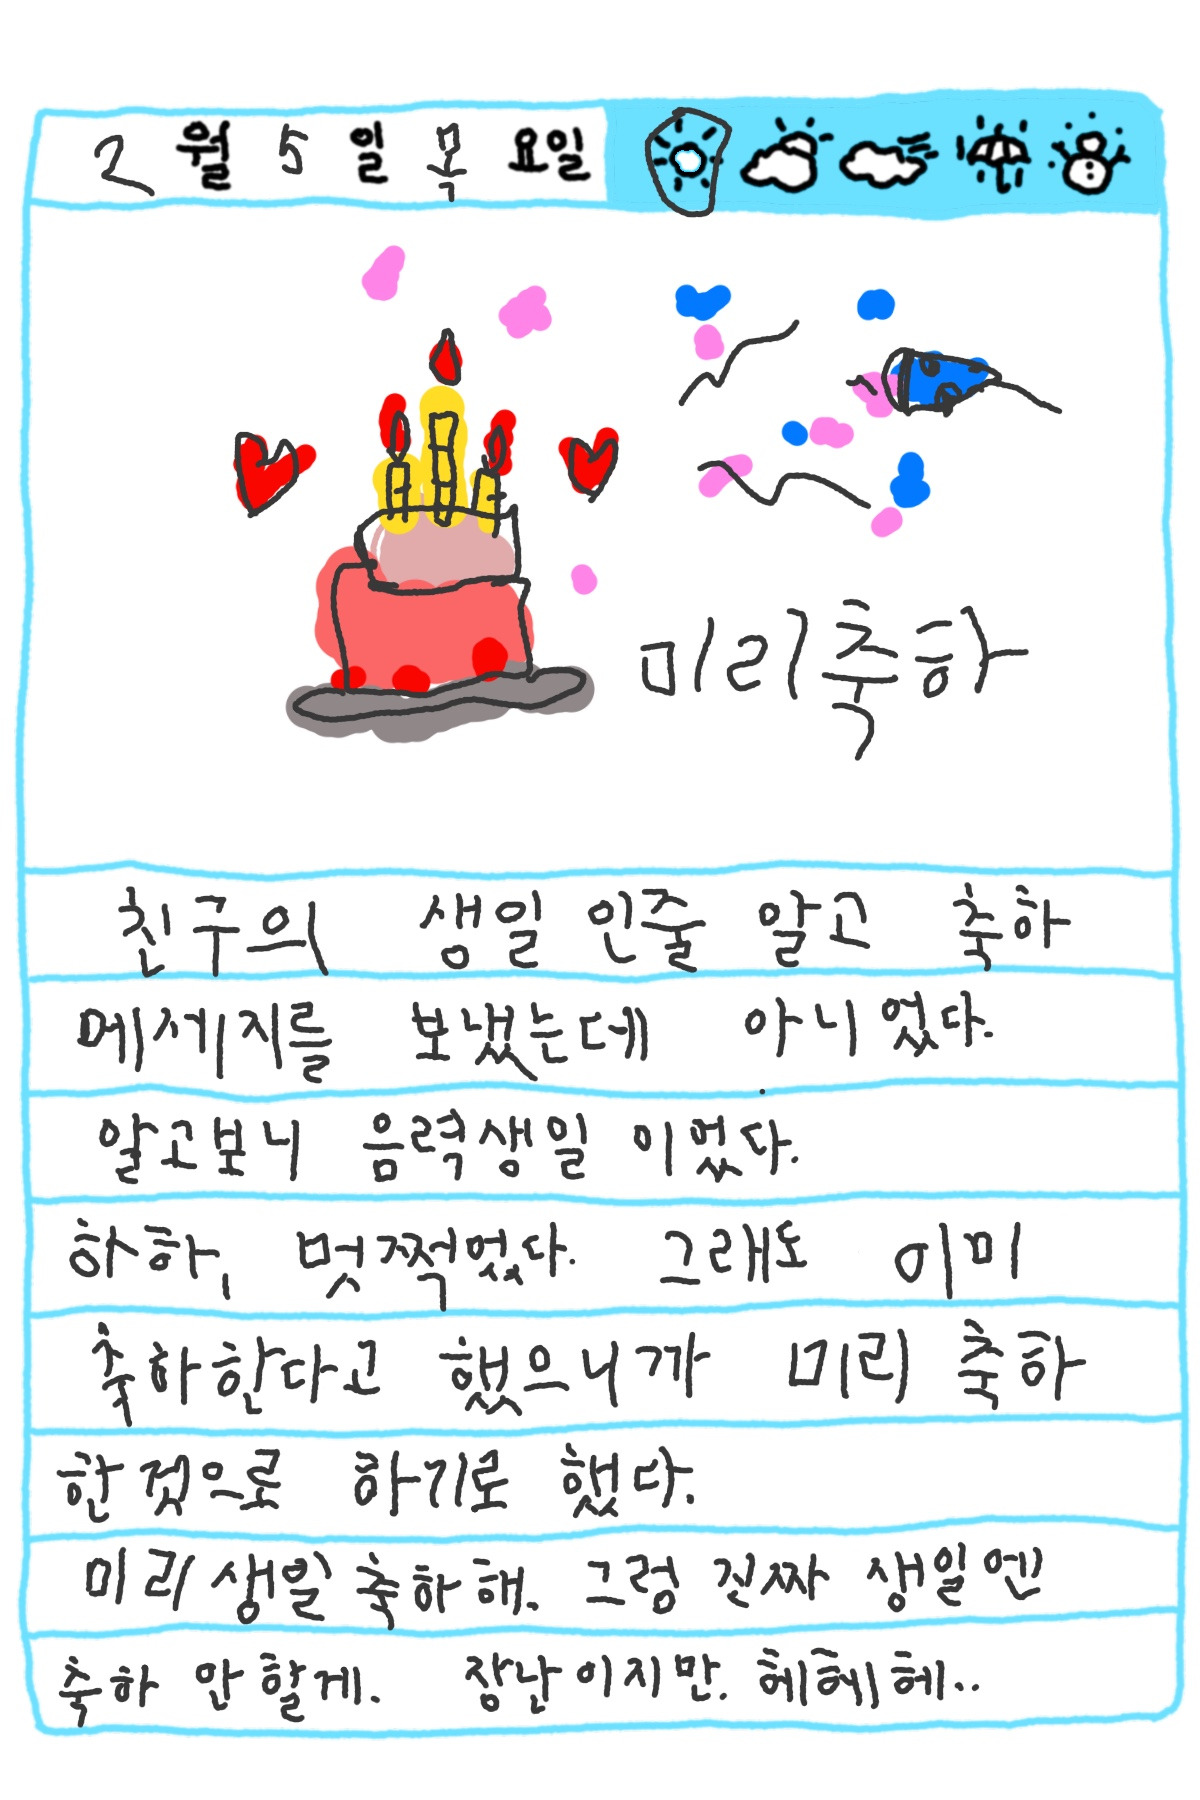 2월 5일 목요일
미리축하
친구의 생일인줄 알고 축하
메세지를 보냈는데 아니었다.
알고보니 음력생일 이었다.
하하, 멋쩍었다. 그래도 이미
축하한다고 했으니까 미리 축하
한 것으로 하기로 했다.
미리 생일 축하해. 그럼 진짜 생일엔
축하 안 할게. 장난이지만. 헤헤헤..